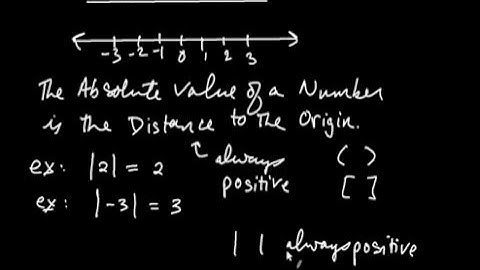 -3 -2 -1 0 1 2 3
The Absolute Value of a Number
is the Distance to The Origin.
always
positive
ex: |2| = 2
ex: |-3| = 3
( )
[ ]
| | always positive